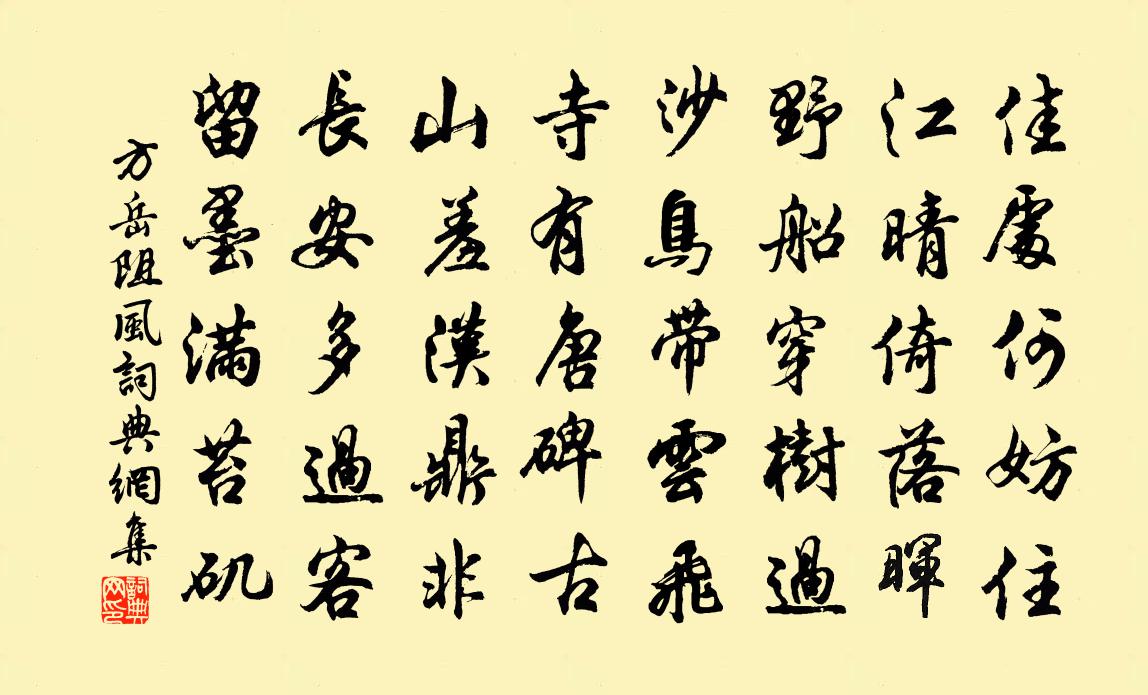 佳處何妨住
江晴倚落暉
野船穿樹過
沙鳥帶雲飛
寺有唐碑古
山羞漢鼎非
長安多過客
留墨滿苔矶
方岳阻風詞典網集
詞典網印